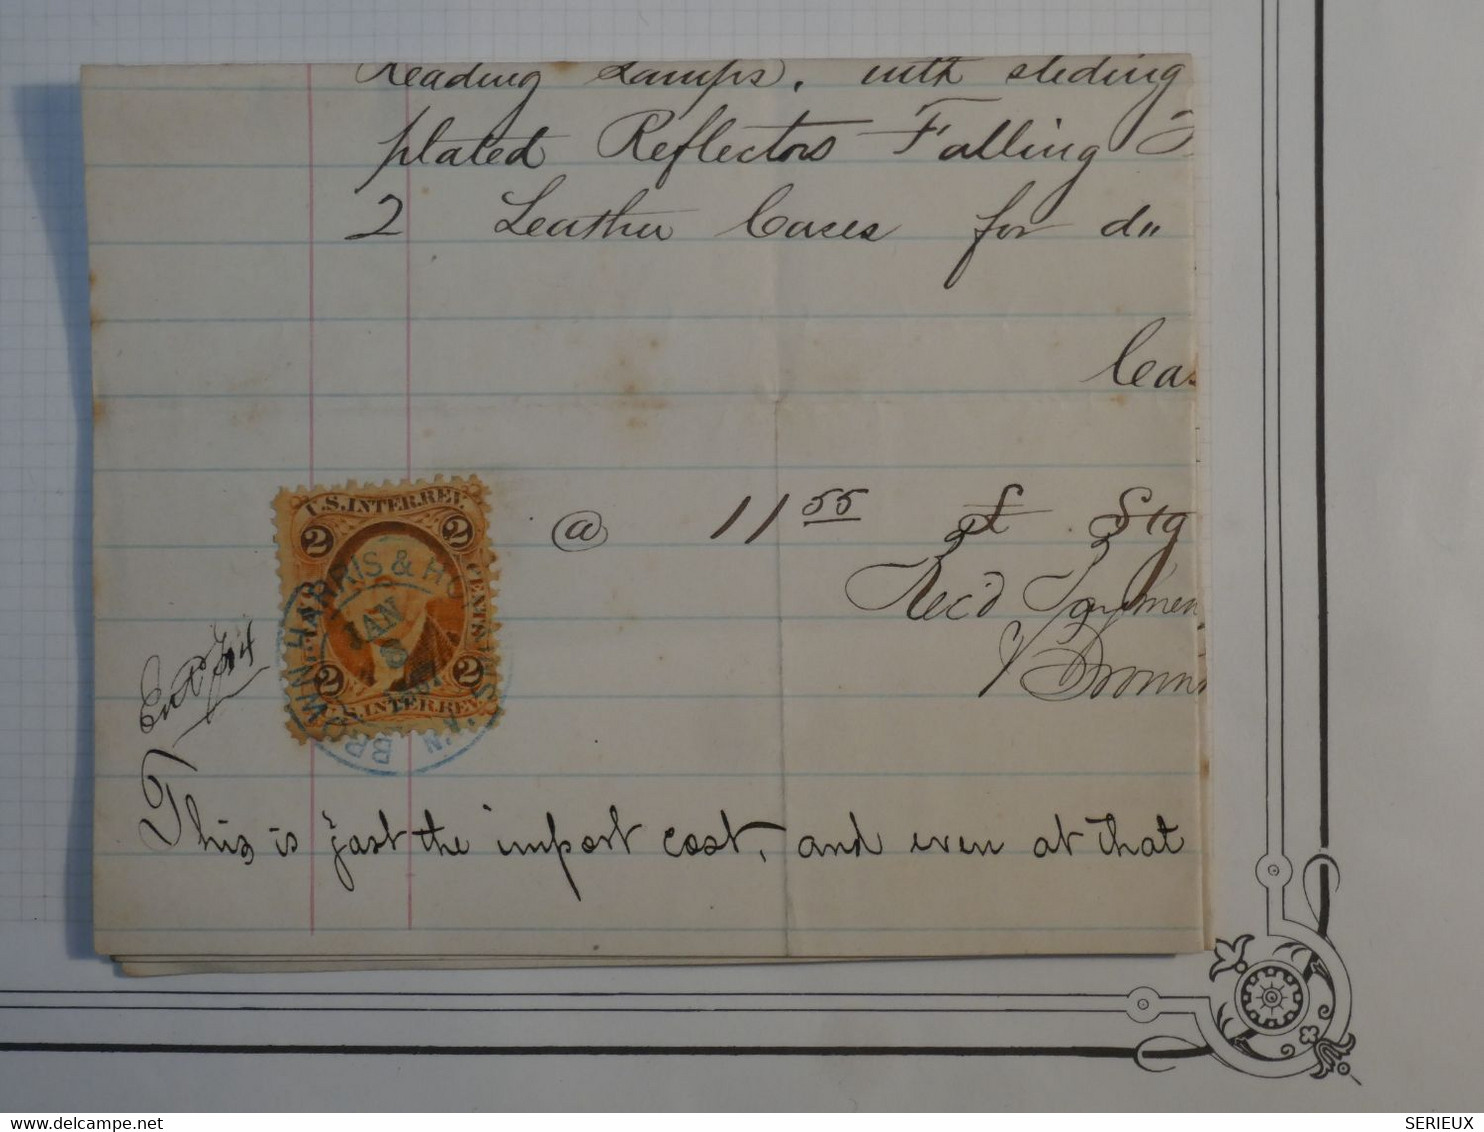 Reading Lamps, with sliding
plated Reflectors Falling
2 Leather Cases for do"
Cas
@ 11 55 £ Stg
Rec'd Paymen
U.S. INTER. REV.
2 2
CENTS
2 2
U.S. INTER. REV.
BROWN HARRIS & HO
JAN
3
This is just the import cost, and even at that
www.delcampe.net
SERIEUX